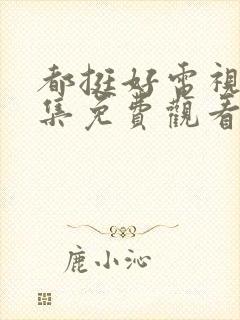 都挺好電視
集免費觀看
鹿小沁